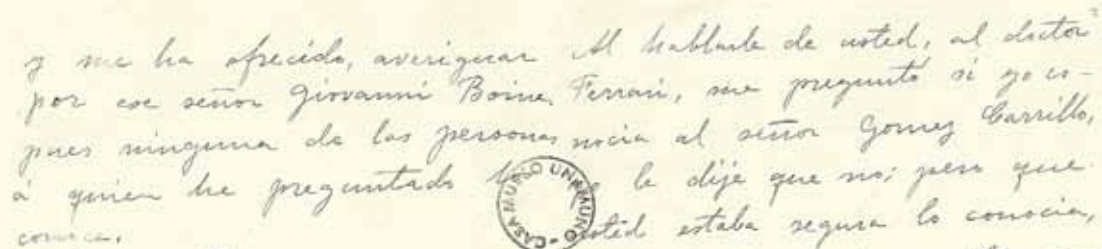 y me ha ofrecido, averiguar
por ese señor Giovanni Boine,
pues ninguna de las personas
á quien he preguntado
conoce.
Al hablarle de usted, al doctor
Ferrari, me preguntó si yo co-
nocia al señor Gomez Carrillo,
le dije que no; pero que
usted estaba segura lo conocia,
CASA MUSEO UNAMUNO